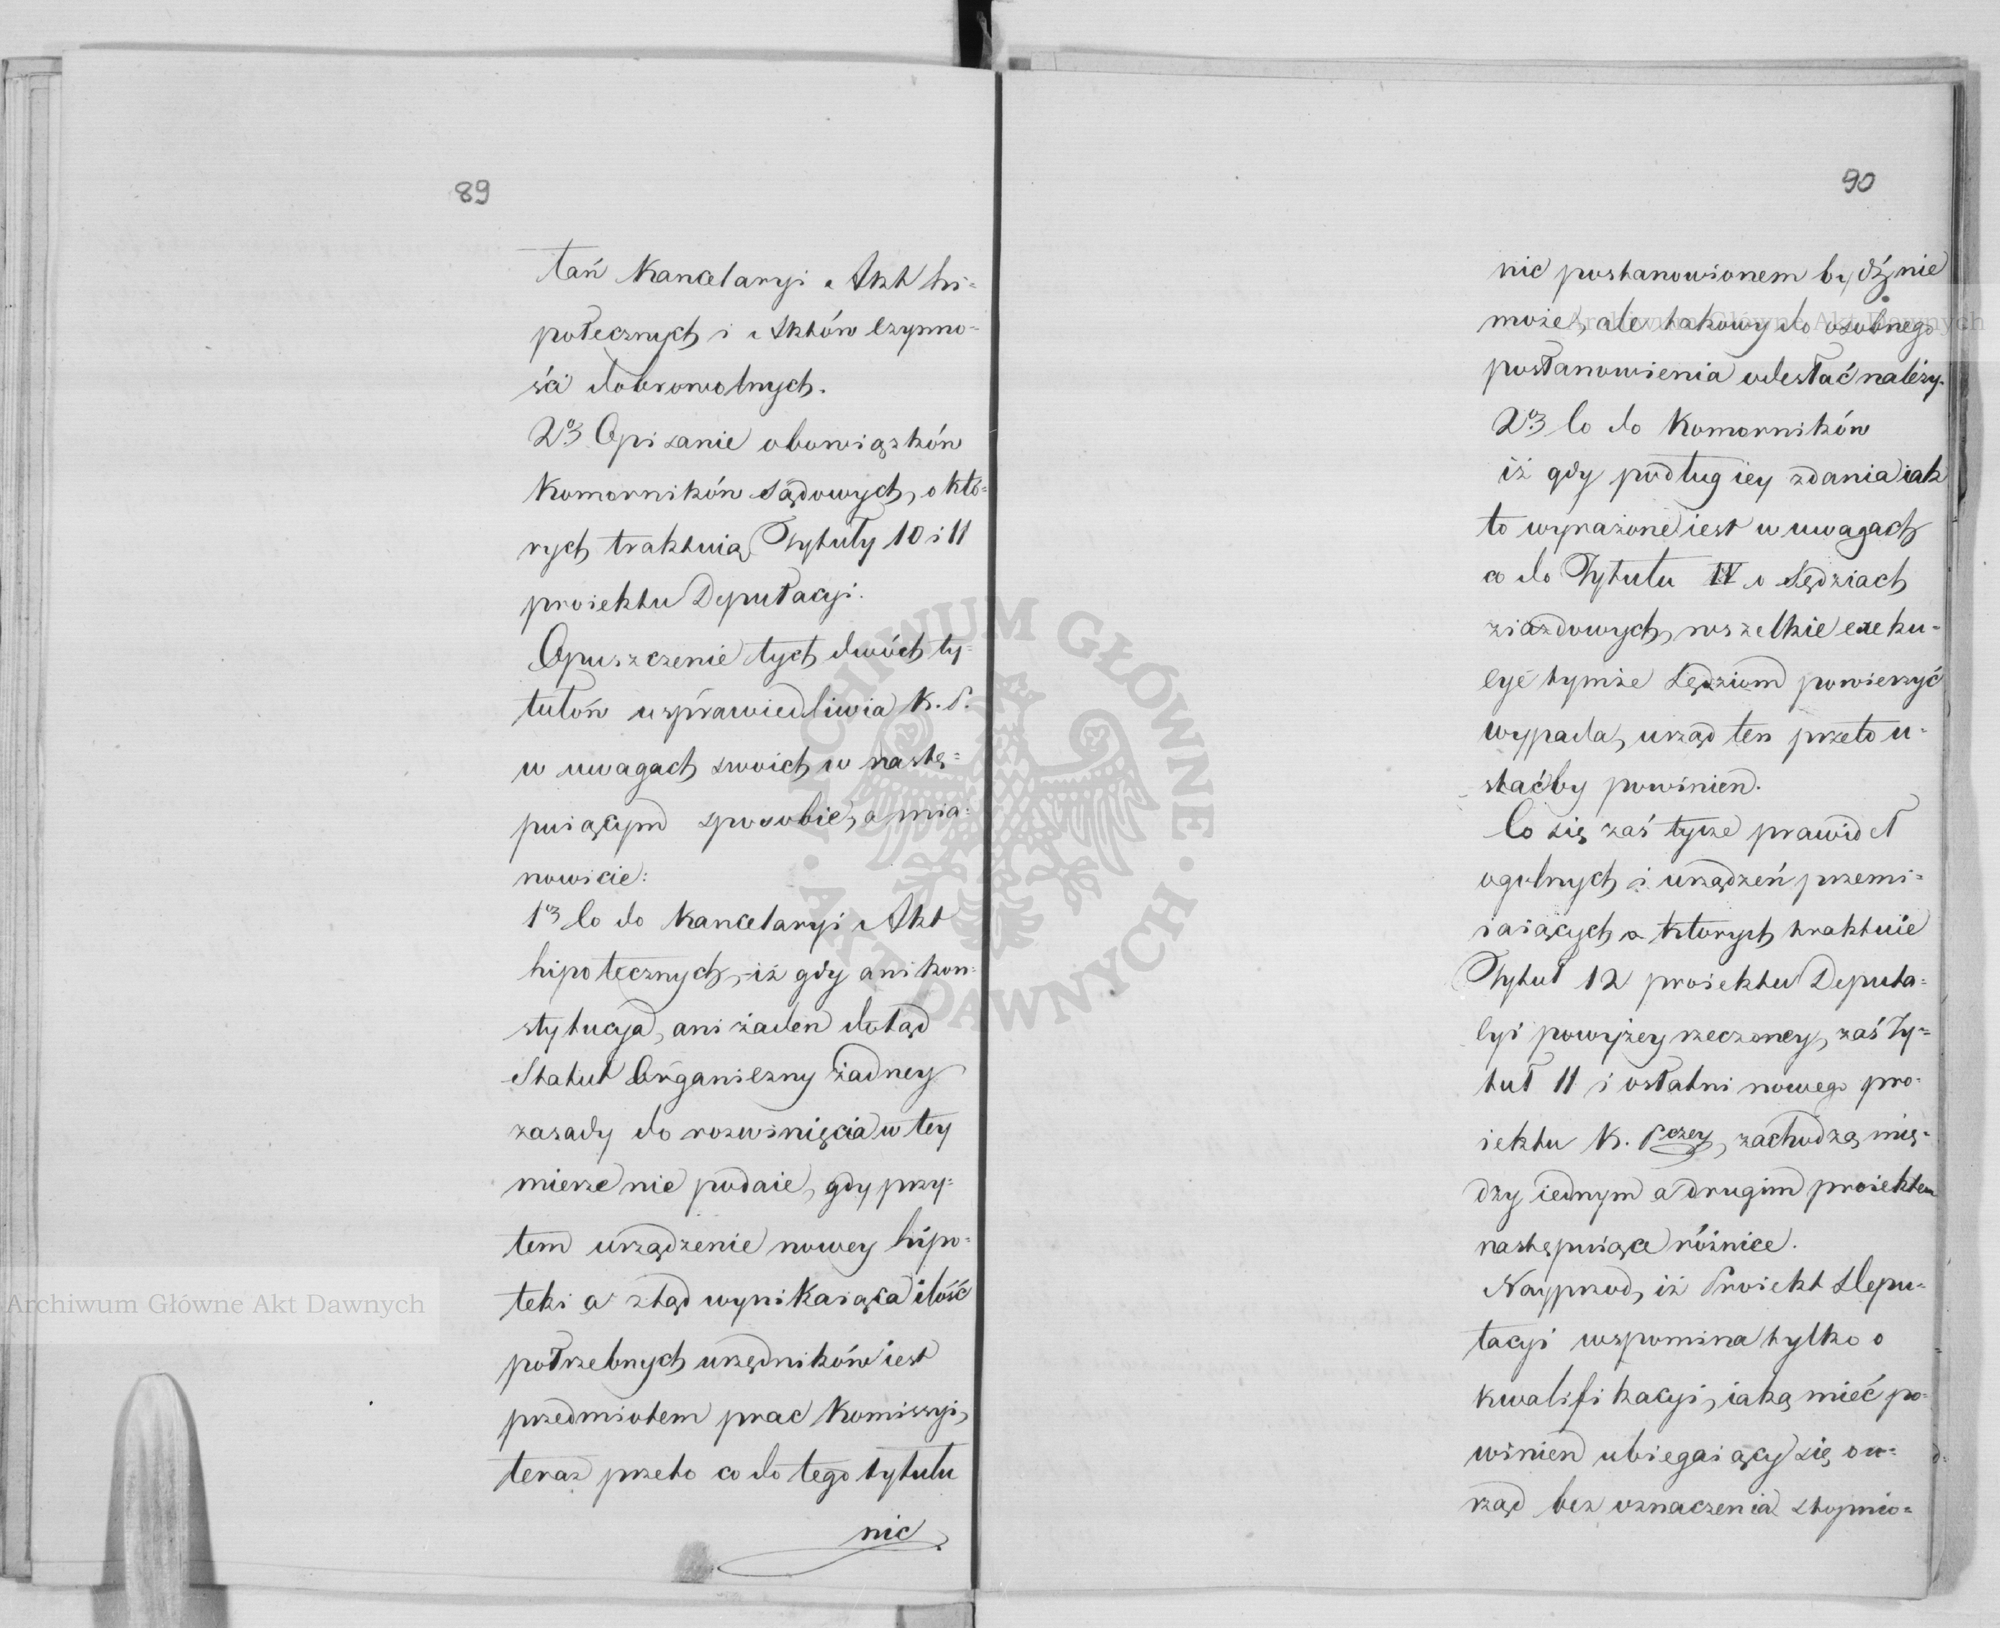 89
tań Kancelaryi Akt hi-
potecznych i Aktów czynno-
ści dobrowolnych.
2re Opisanie obowiązków
Komorników sądowych, o któ-
rych traktuią Tytuły 10 i 11
proiektu Deputacyi.
Opuszczenie tych dwóch ty-
tułów usprawiedliwia K. P.
w uwagach swoich w nastę-
puiącym sposobie, a mia-
nowicie:
Co do Kancelaryi Akt
hipotecznych, iż gdy ani kon-
stytucya, ani żaden dotąd
Statut Organiczny żadney
zasady do rozwinięcia w tey
mierze nie podaie, gdy przy-
tem urządzenie nowey hipo-
teki a ztąd wynikaiąca ilość
potrzebnych urzędników iest
przedmiotem prac Komissyi,
teraz przeto co do tego tytułu
nic
90
nic postanowionem bydź nie
może, ale takowy do osobnego
postanowienia odesłać należy.
Co do Komorników
iż gdy podług iey zdania iak
to wyrażone iest w uwagach
co do Tytułu IV o Sędziach
ziazdowych, wszelkie exeku-
cye tymże Sędziom powierzyć
wypada, urząd ten przeto u-
staćby powinien.
Co się zaś tycze prawideł
ogolnych i urządzeń przemi-
iaiących o ktorych traktuie
Tytuł 12 proiektu Deputa-
cyi powyżey rzeczoney, zaś Ty-
tuł 11 i ostatni nowego pro-
iektu K. Pczey, zachodzą mię-
dzy iednym a drugim proiektem
następuiące różnice.
Nayprzod, iż Proiekt Depu-
tacyi wspomina tylko o
kwalifikacyi, iaką mieć po-
winien ubiegaiący się o u-
rząd bez oznaczenia stopnio-
ARCHIWUM GŁÓWNE AKT DAWNYCH
Archiwum Główne Akt Dawnych
Archiwum Główne Akt Dawnych